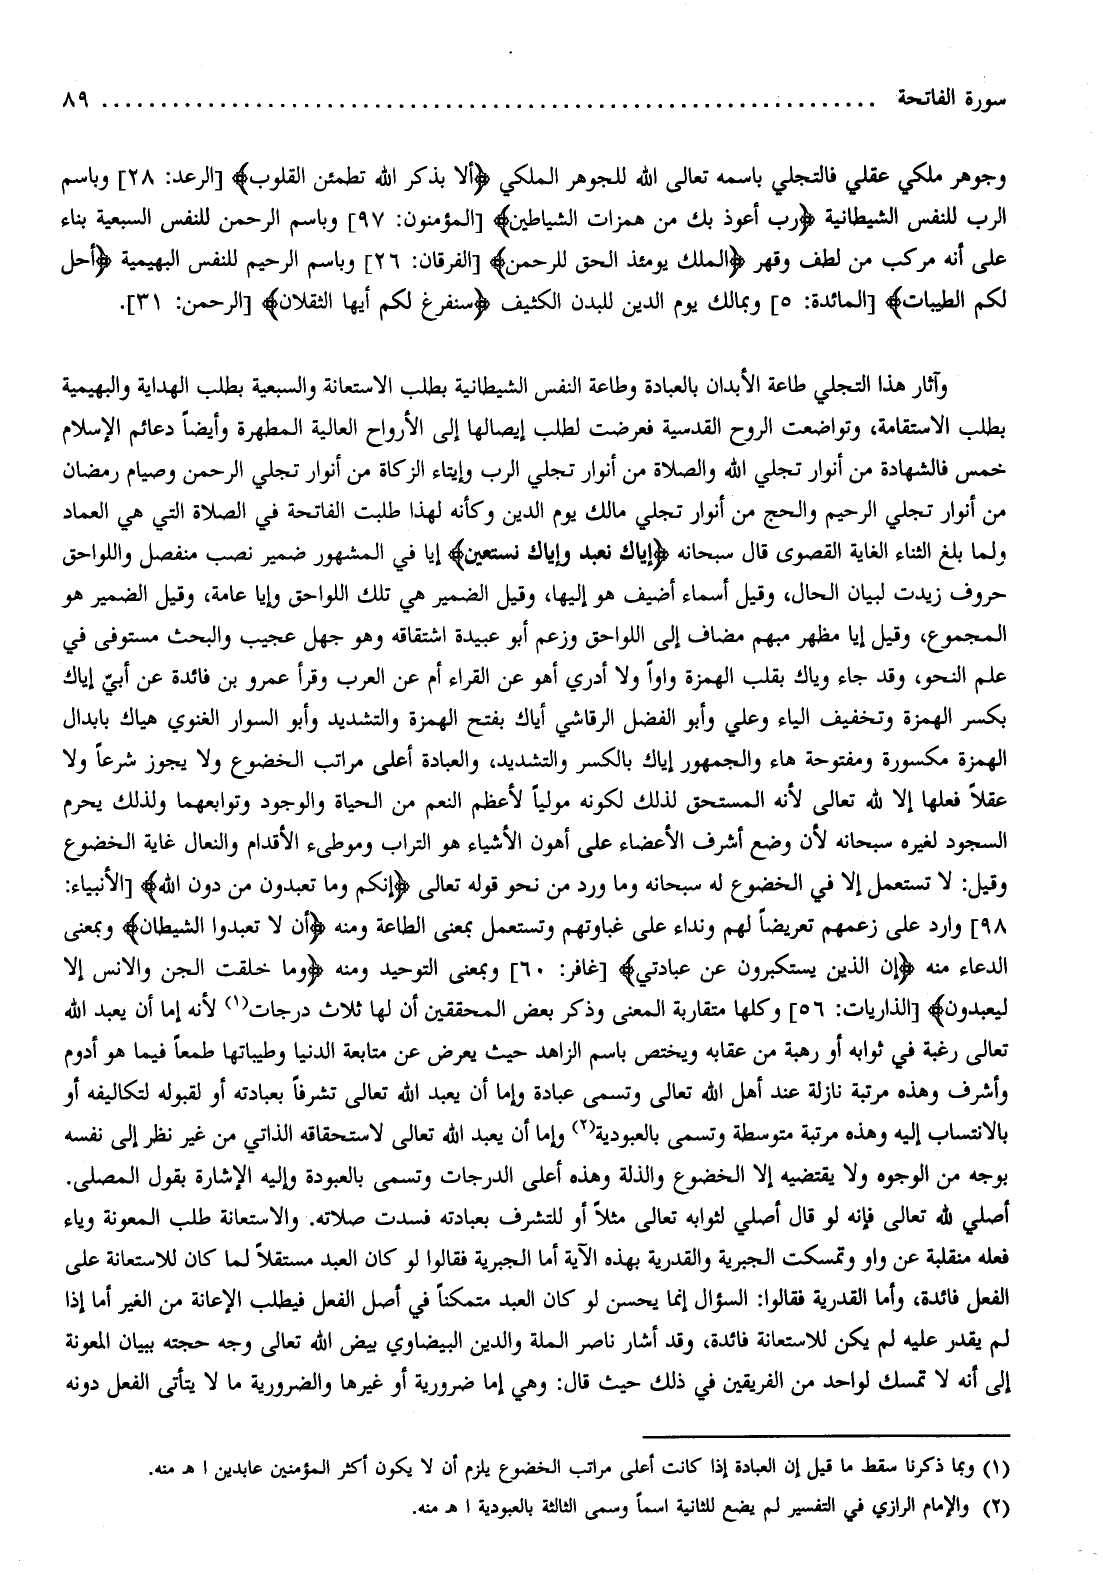 سورة الفاتحة ........................................................................ ٨٩
وجوهر ملكي عقلي فالتجلي باسمه تعالى الله للجوهر الملكي ﴿ألا بذكر الله تطمئن القلوب﴾ [الرعد: ٢٨] وباسم
الرب للنفس الشيطانية ﴿رب أعوذ بك من همزات الشياطين﴾ [المؤمنون: ٩٧] وباسم الرحمن للنفس السبعية بناء
على أنه مركب من لطف وقهر ﴿الملك يومئذ الحق للرحمن﴾ [الفرقان: ٢٦] وباسم الرحيم للنفس البهيمية ﴿أحل
لكم الطيبات﴾ [المائدة: ٥] وبمالك يوم الدين للبدن الكثيف ﴿سنفرغ لكم أيها الثقلان﴾ [الرحمن: ٣١].
وآثار هذا التجلي طاعة الأبدان بالعبادة وطاعة النفس الشيطانية بطلب الاستعانة والسبعية بطلب الهداية والبهيمية
بطلب الاستقامة، وتواضعت الروح القدسية فعرضت لطلب إيصالها إلى الأرواح العالية المطهرة وأيضاً دعائم الإسلام
خمس فالشهادة من أنوار تجلي الله والصلاة من أنوار تجلي الرب وإيتاء الزكاة من أنوار تجلي الرحمن وصيام رمضان
من أنوار تجلي الرحيم والحج من أنوار تجلي مالك يوم الدين وكأنه لهذا طلبت الفاتحة في الصلاة التي هي العماد
ولما بلغ الثناء الغاية القصوى قال سبحانه ﴿إياك نعبد وإياك نستعين﴾ إيا في المشهور ضمير نصب منفصل واللواحق
حروف زيدت لبيان الحال، وقيل أسماء أضيف هو إليها، وقيل الضمير هي تلك اللواحق وإيا عامة، وقيل الضمير هو
المجموع، وقيل إيا مظهر مبهم مضاف إلى اللواحق وزعم أبو عبيدة اشتقاقه وهو جهل عجيب والبحث مستوفى في
علم النحو، وقد جاء وياك بقلب الهمزة واواً ولا أدري أهو عن القراء أم عن العرب وقرأ عمرو بن فائدة عن أبيّ إياك
بكسر الهمزة وتخفيف الياء وعلي وأبو الفضل الرقاشي أياك بفتح الهمزة والتشديد وأبو السوار الغنوي هياك بابدال
الهمزة مكسورة ومفتوحة هاء والجمهور إياك بالكسر والتشديد، والعبادة أعلى مراتب الخضوع ولا يجوز شرعاً ولا
عقلاً فعلها إلا لله تعالى لأنه المستحق لذلك لكونه مولياً لأعظم النعم من الحياة والوجود وتوابعهما ولذلك يحرم
السجود لغيره سبحانه لأن وضع أشرف الأعضاء على أهون الأشياء هو التراب وموطىء الأقدام والنعال غاية الخضوع
وقيل: لا تستعمل إلا في الخضوع له سبحانه وما ورد من نحو قوله تعالى ﴿إنكم وما تعبدون من دون الله﴾ [الأنبياء:
٩٨] وارد على زعمهم تعريضاً لهم ونداء على غباوتهم وتستعمل بمعنى الطاعة ومنه ﴿أن لا تعبدوا الشيطان﴾ وبمعنى
الدعاء منه ﴿إن الذين يستكبرون عن عبادتي﴾ [غافر: ٦٠] وبمعنى التوحيد ومنه ﴿وما خلقت الجن والانس إلا
ليعبدون﴾ [الذاريات: ٥٦] وكلها متقاربة المعنى وذكر بعض المحققين أن لها ثلاث درجات(١) لأنه إما أن يعبد الله
تعالى رغبة في ثوابه أو رهبة من عقابه ويختص باسم الزاهد حيث يعرض عن متابعة الدنيا وطيباتها طمعاً فيما هو أدوم
وأشرف وهذه مرتبة نازلة عند أهل الله تعالى وتسمى عبادة وإما أن يعبد الله تعالى تشرفاً بعبادته أو لقبوله لتكاليفه أو
بالانتساب إليه وهذه مرتبة متوسطة وتسمى بالعبودية(٢) وإما أن يعبد الله تعالى لاستحقاقه الذاتي من غير نظر إلى نفسه
بوجه من الوجوه ولا يقتضيه إلا الخضوع والذلة وهذه أعلى الدرجات وتسمى بالعبودة وإليه الإشارة بقول المصلى.
أصلي لله تعالى فإنه لو قال أصلي لثوابه تعالى مثلاً أو للتشرف بعبادته فسدت صلاته. والاستعانة طلب المعونة وياء
فعله منقلبة عن واو وتمسكت الجبرية والقدرية بهذه الآية أما الجبرية فقالوا لو كان العبد مستقلاً لما كان للاستعانة على
الفعل فائدة، وأما القدرية فقالوا: السؤال إنما يحسن لو كان العبد متمكناً في أصل الفعل فيطلب الإعانة من الغير أما إذا
لم يقدر عليه لم يكن للاستعانة فائدة، وقد أشار ناصر الملة والدين البيضاوي بيض الله تعالى وجه حجته ببيان المعونة
إلى أنه لا تمسك لواحد من الفريقين في ذلك حيث قال: وهي إما ضرورية أو غيرها والضرورية ما لا يتأتى الفعل دونه
(١) وبما ذكرنا سقط ما قيل إن العبادة إذا كانت أعلى مراتب الخضوع يلزم أن لا يكون أكثر المؤمنين عابدين ا هـ منه.
(٢) والإمام الرازي في التفسير لم يضع للثانية اسماً وسمى الثالثة بالعبودية ا هـ منه.